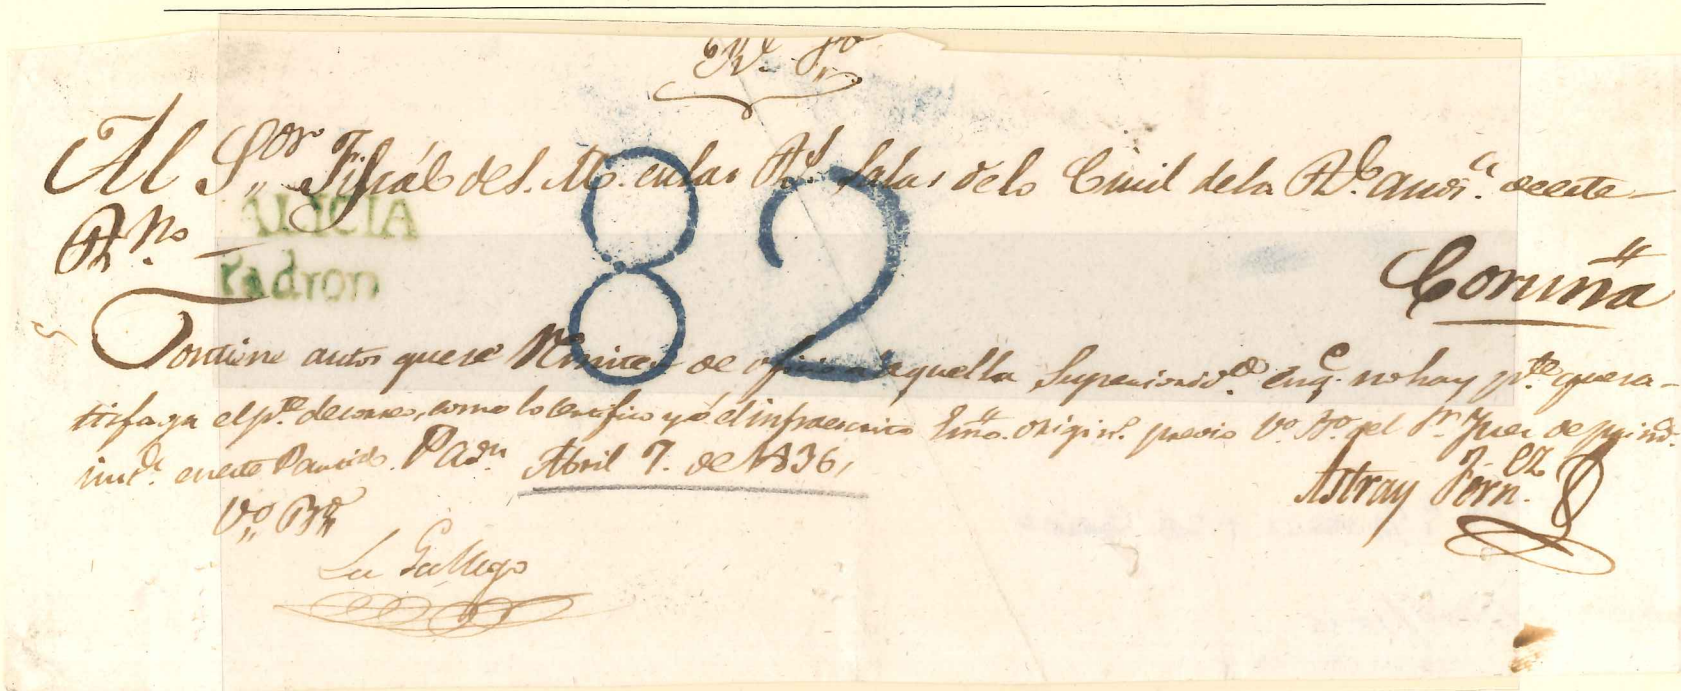 Al S.or Fiscál de S. M. en las R.s Salas de lo Civil de la R.l aud.a de este
R.no
GALICIA
Padron
82
Coruña
Contiene autos que se Remiten de oficio a aquella Superioridad en q.e no hay p.te que sa-
tisfaga el p.te de correo, como lo certifico yo el infraescrito Esno. origin.o previo V.o B.o del S.r Juez de
en este Partido. Padn. Abril 7. de 1836,
V.o B.o
Astray Fern.ez
La Gallego